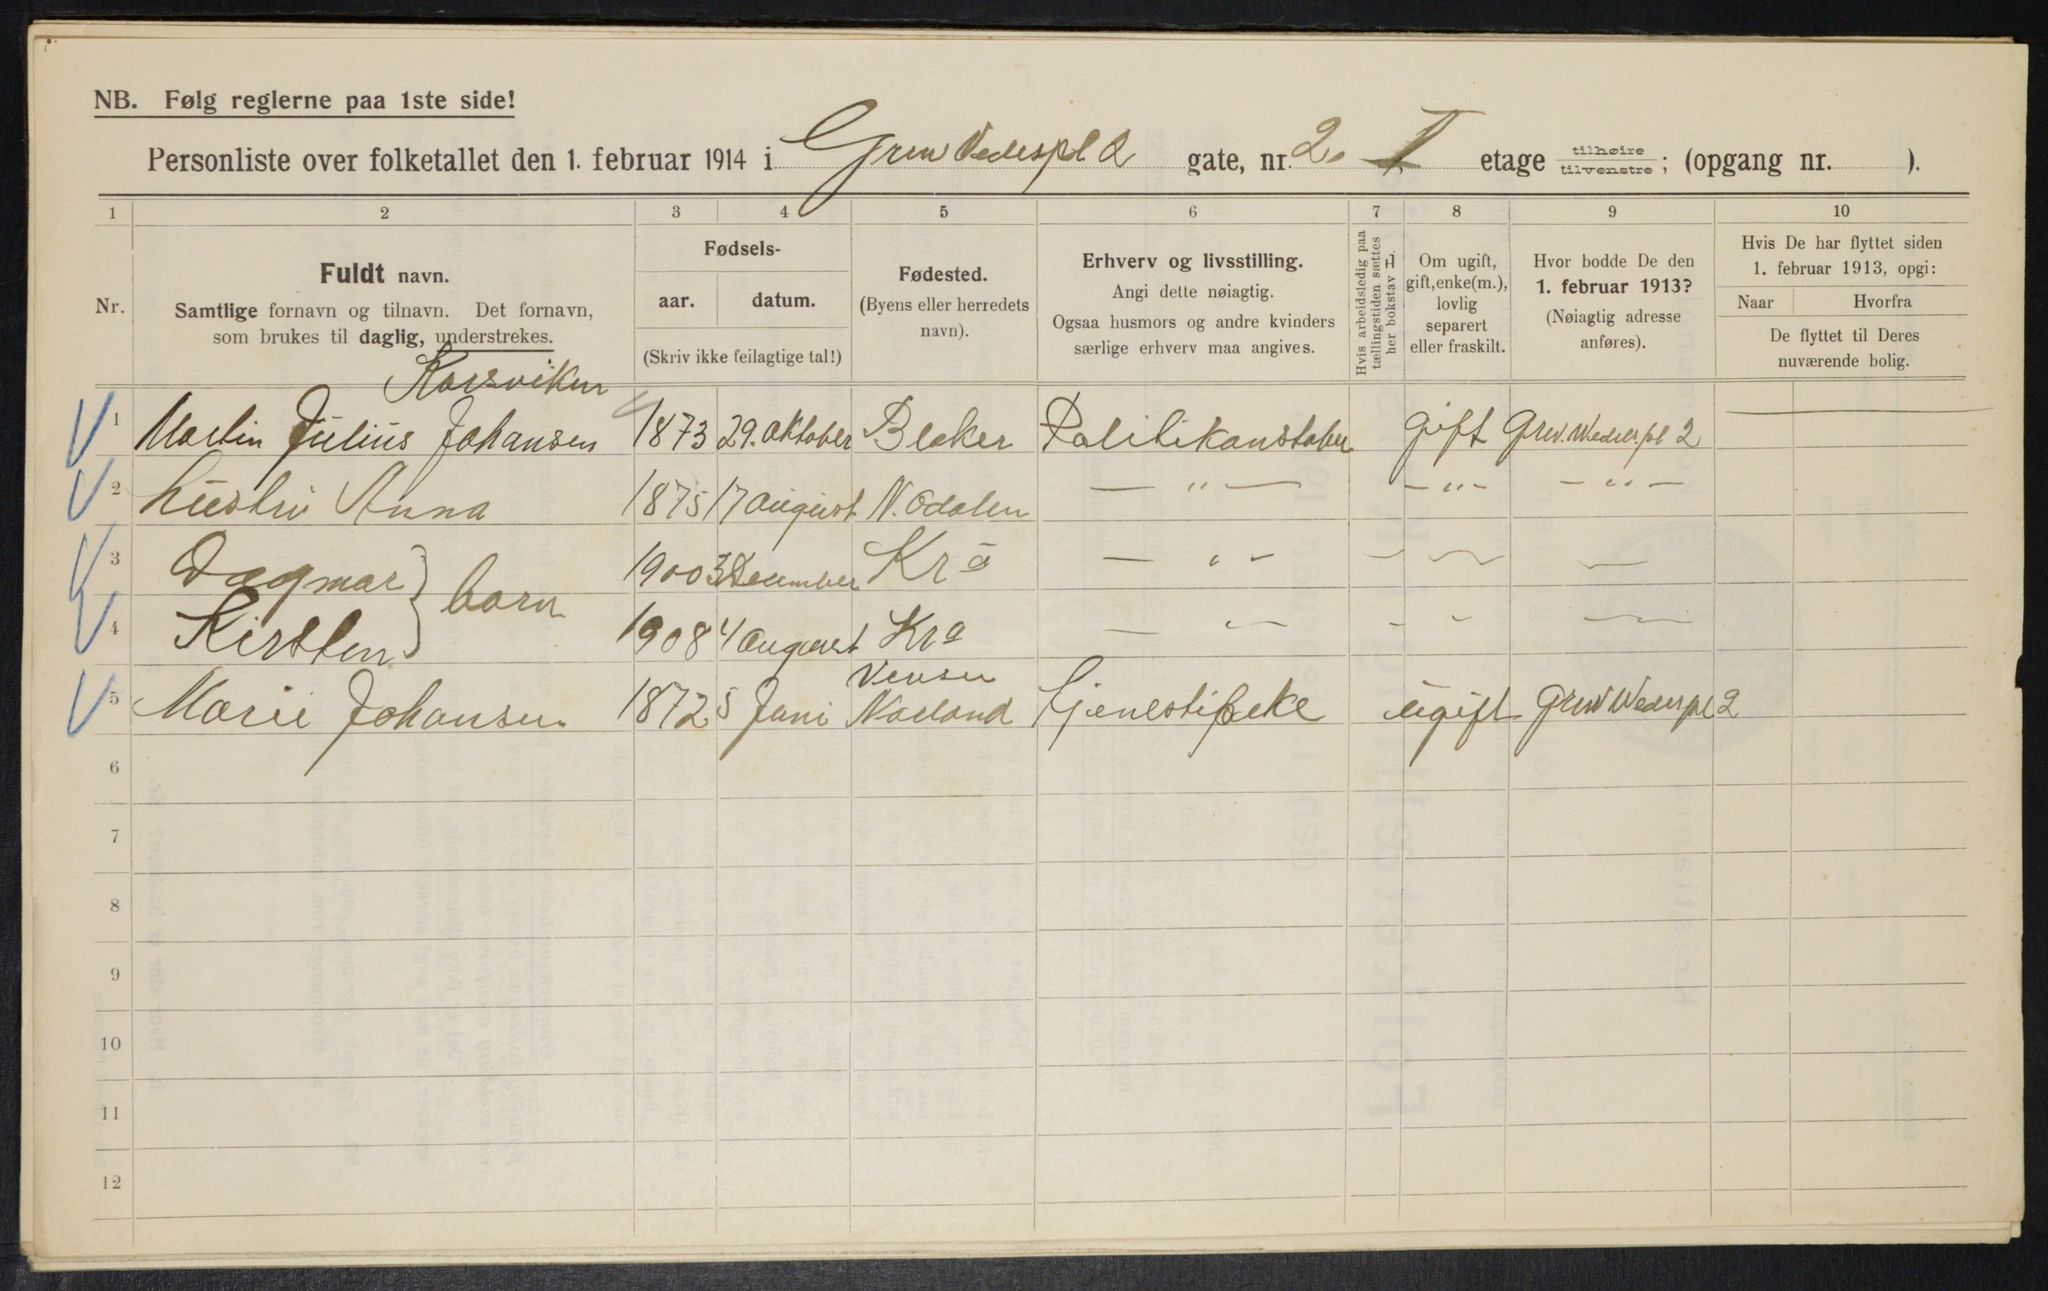 NB. Følg reglerne paa 1ste side!
Personliste over folketallet den 1. februar 1914 i Grew Vedespl 2 gate, nr. 2. I etage tilhøire tilvenstre; (opgang nr. ).
1 2 3 4 5 6 7 8 9 10
Nr.
Fuldt navn.
Samtlige fornavn og tilnavn. Det fornavn,
som brukes til daglig, understrekes.
Fødsels-
aar. datum.
(Skriv ikke feilagtige tal!)
Fødested.
(Byens eller herredets
navn).
Erhverv og livsstilling.
Angi dette nøiagtig.
Ogsaa husmors og andre kvinders
særlige erhverv maa angives.
Hvis arbeidsledig paa
tællingstiden sættes
her bokstav L
Om ugift,
gift, enke(m.),
lovlig
separert
eller fraskilt.
Hvor bodde De den
1. februar 1913?
(Nøiagtig adresse
anføres).
Hvis De har flyttet siden
1. februar 1913, opgi:
Naar Hvorfra
De flyttet til Deres
nuværende bolig.
Korsviken
1 Martin Julius Johansen 1873 29. Oktober Blaker Politikonstabel gift Grev. Wedels. pl 2
2 hustru Anna 1875 17 August N. Odalen — " — — " — — " —
3 Dagmar 1900 December Kr a — " —
born
4 Kirsten 1908 4 August Kr a — "
5 Marie Johansen 1872 5 Juni Norland Tjenestepike ugift Grev Wedespl 2
6
7
8
9
10
11
12